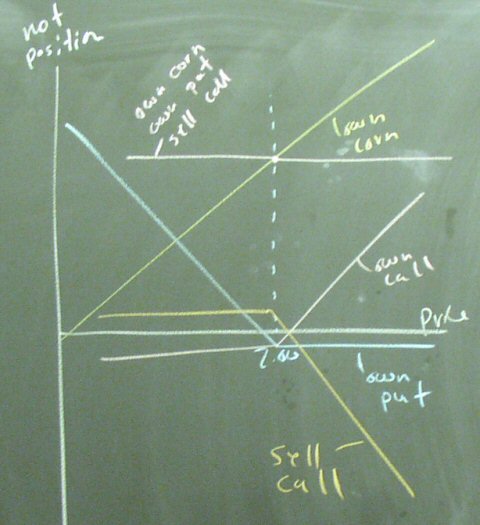 not
position
own corn
own put
sell call
own
corn
own
call
Price
2.00
own
put
sell
call